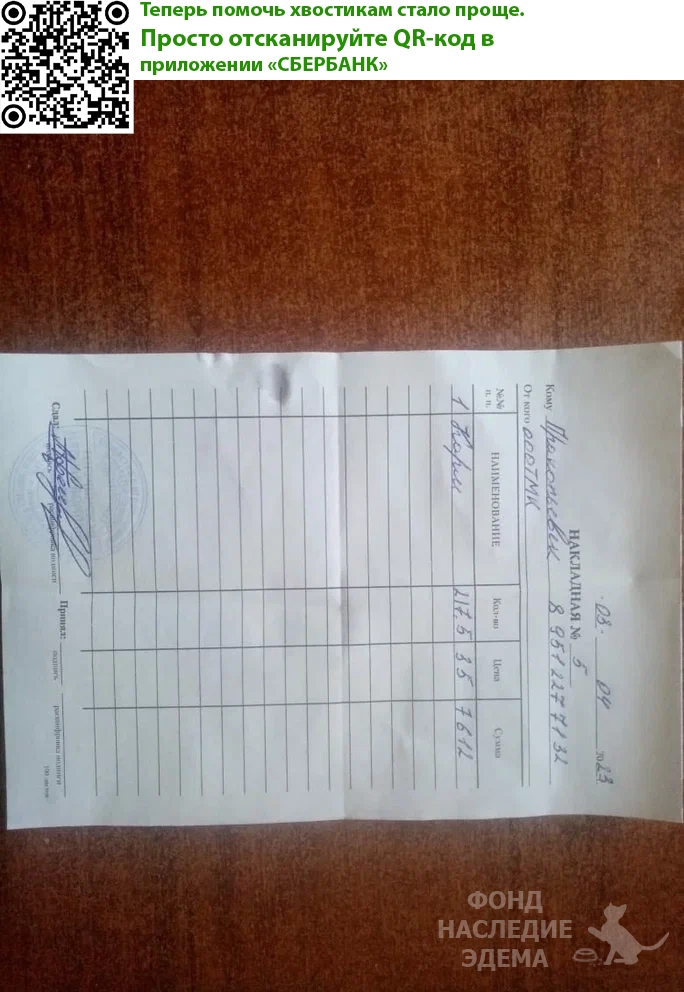 Теперь помочь хвостикам стало проще.
Просто отсканируйте QR-код в
приложении «СБЕРБАНК»
03. 04 2023.
НАКЛАДНАЯ № 5
Кому Прокопьевск 89512277132
От кого ОООТМК
№№ п. п. НАИМЕНОВАНИЕ Кол-во Цена Сумма
1 Корм 217,5 35 7612
Сдал: Принял:
подпись расшифровка подписи подпись расшифровка подписи
100 листов
ФОНД
НАСЛЕДИЕ
ЭДЕМА